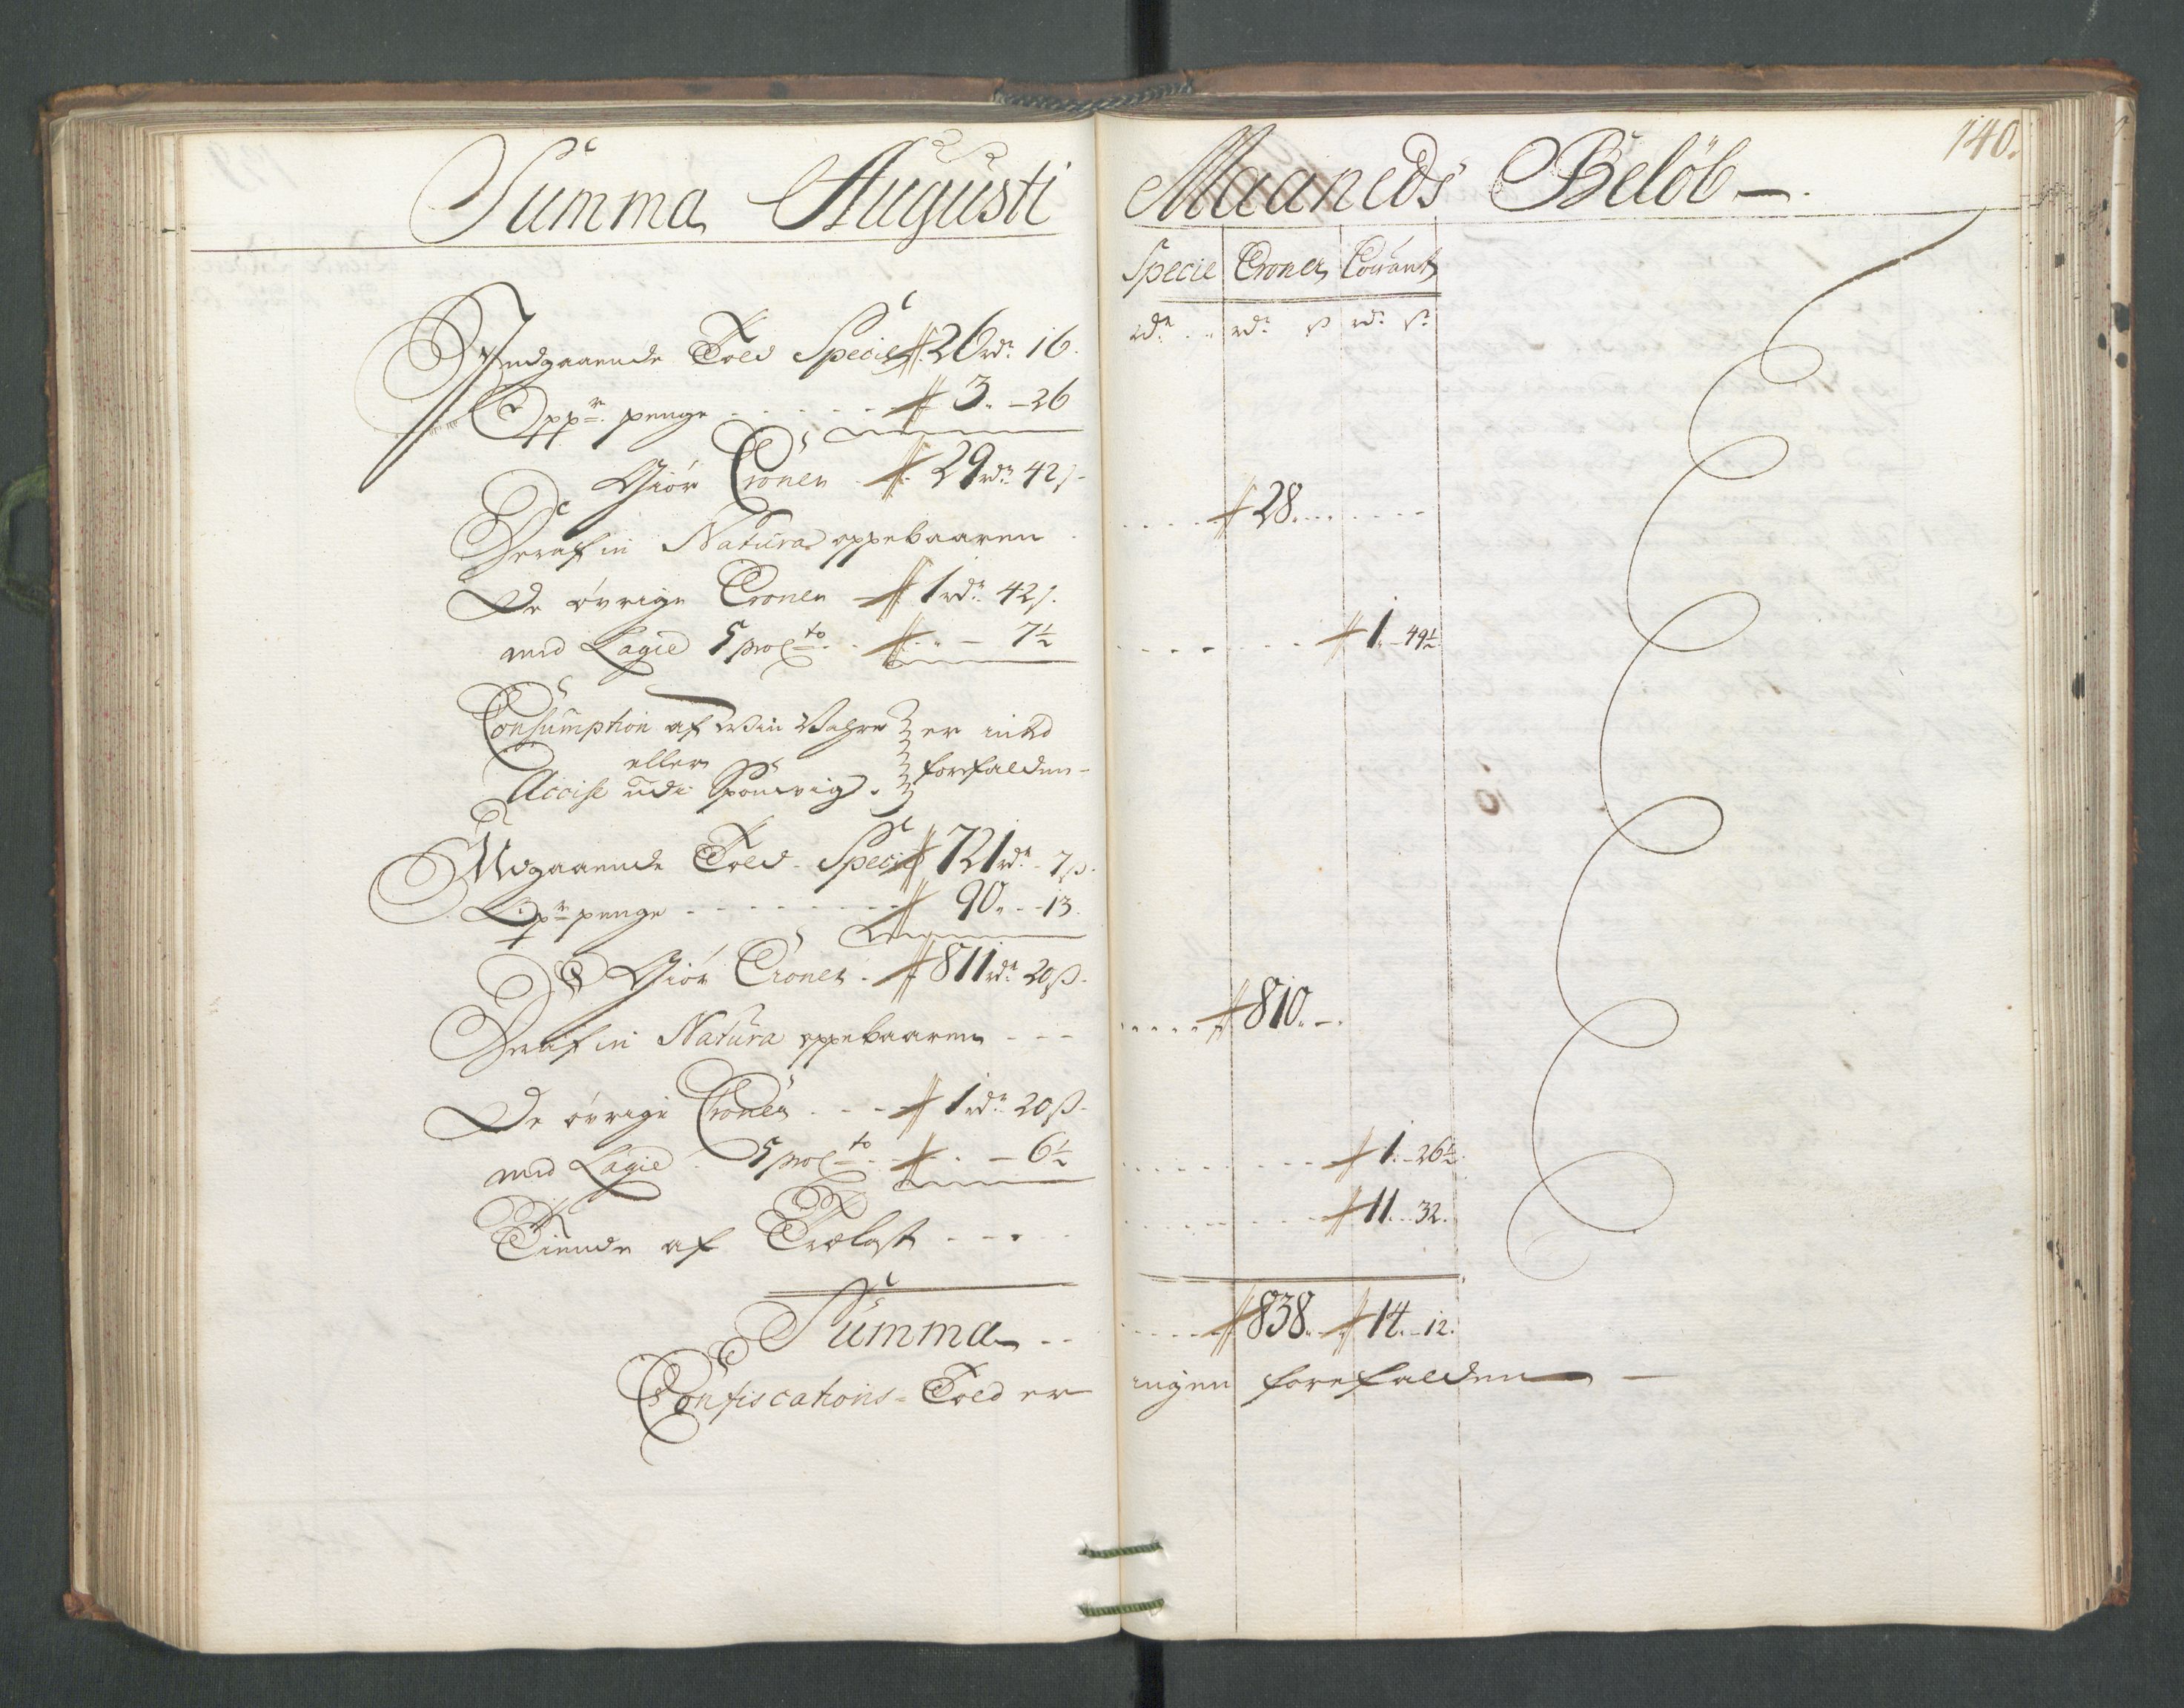 140.
Summa Augusti Maaneds Beløb
Specie Croner Courant
rdr. rdr. ß rdr. ß.
Indgaaende Told Specie # 26 rdr. 16.
Oppr. penge # 3. - 26
Giör Croner # 29 rdr. 42 ß.
Deraf in Natura oppebaaren # 28.
De övrige Croner # 1 rdr. 42 ß.
med Lagie 5 proCto. # - 7½ # 1. - 49½
Consumption af Viin Vahre er intd
eller forefalden
Accise udi
Udgaaende Told Specie # 721 rdr. 7 ß.
Opr. penge # 90. - 13.
Giör Croner # 811 rdr. 20 ß.
Deraf in Natura oppebaaren # 810. -
De övrige Croner # 1 rdr. 20 ß.
med Lagie 5 proCto. # - 6½ # 1. - 26½
Tiende af Trælast # 11. - 32.
Summa # 838. # 14. - 12.
Confiscations-Told er ingen forefalden